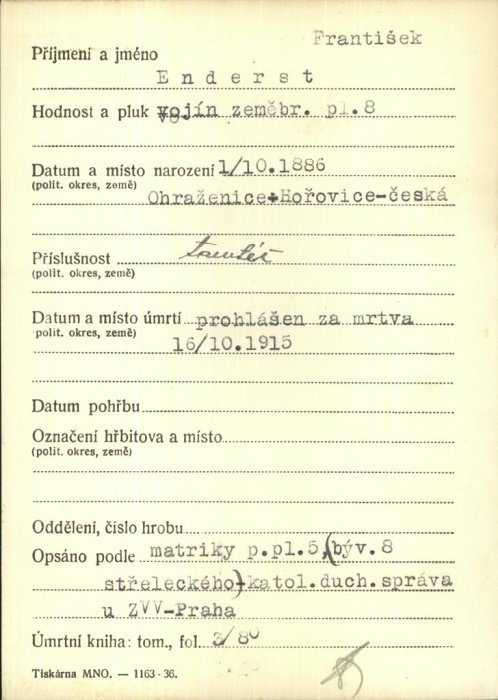 František
Příjmení a jméno
Enderst
Hodnost a pluk vojín zeměbr. pl.8
Datum a místo narození 1/10.1886
(polit. okres, země)
Ohraženice-Hořovice-česká
Příslušnost tamtéž
(polit. okres, země)
Datum a místo úmrtí prohlášen za mrtva
polit. okres, země)
16/10.1915
Datum pohřbu
Označení hřbitova a místo
(polit. okres, země)
Oddělení, číslo hrobu
Opsáno podle matriky p.pl.5,(býv.8
střeleckého)-katol.duch.správa
u ZVV-Praha
Úmrtní kniha: tom., fol. 3/80
Tiskárna MNO. — 1163-36.